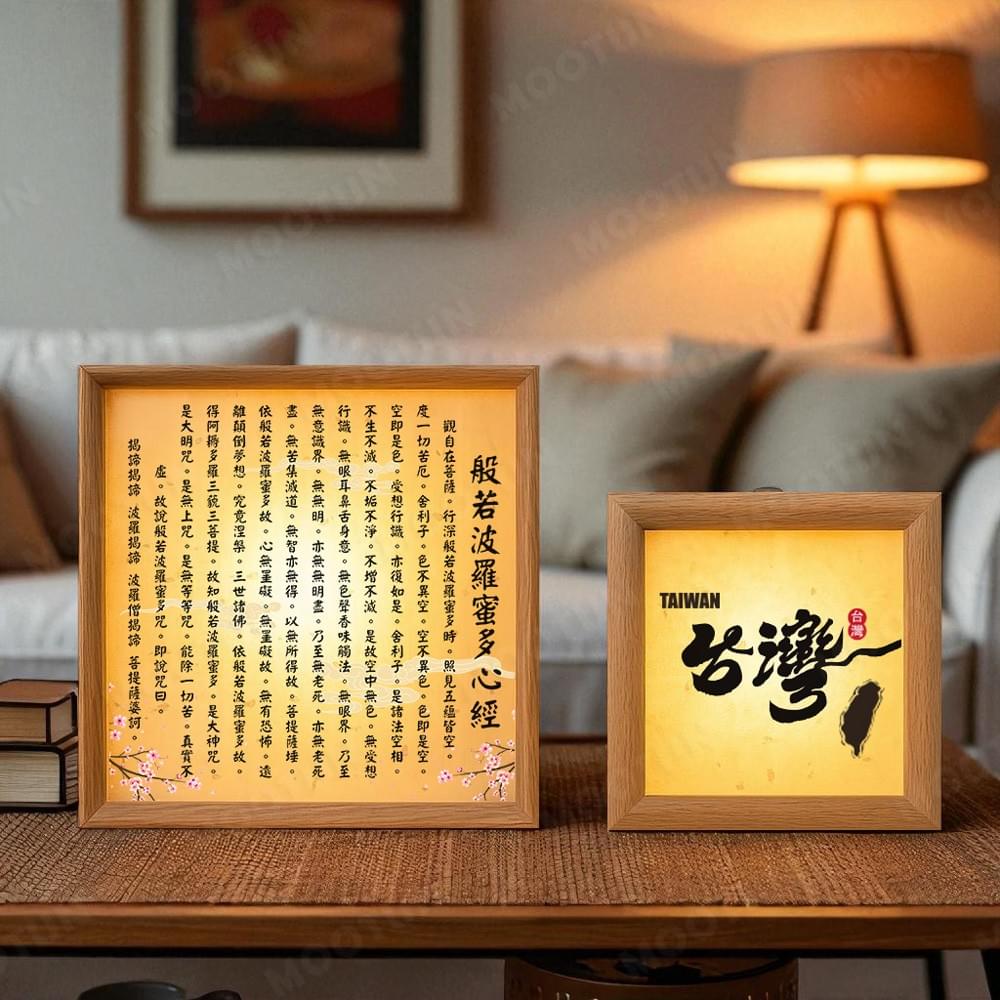 般若波羅蜜多心經
觀自在菩薩。行深般若波羅蜜多時。照見五蘊皆空。
度一切苦厄。舍利子。色不異空。空不異色。色即是空。
空即是色。受想行識。亦復如是。舍利子。是諸法空相。
不生不滅。不垢不淨。不增不減。是故空中無色。無受想
行識。無眼耳鼻舌身意。無色聲香味觸法。無眼界。乃至
無意識界。無無明。亦無無明盡。乃至無老死。亦無老死
盡。無苦集滅道。無智亦無得。以無所得故。菩提薩埵。
依般若波羅蜜多故。心無罣礙。無罣礙故。無有恐怖。遠
離顛倒夢想。究竟涅槃。三世諸佛。依般若波羅蜜多故。
得阿耨多羅三藐三菩提。故知般若波羅蜜多。是大神咒。
是大明咒。是無上咒。是無等等咒。能除一切苦。真實不
虛。故說般若波羅蜜多咒。即說咒曰。
揭諦揭諦 波羅揭諦 波羅僧揭諦 菩提薩婆訶。
TAIWAN
台灣
台灣
MOOTUIN